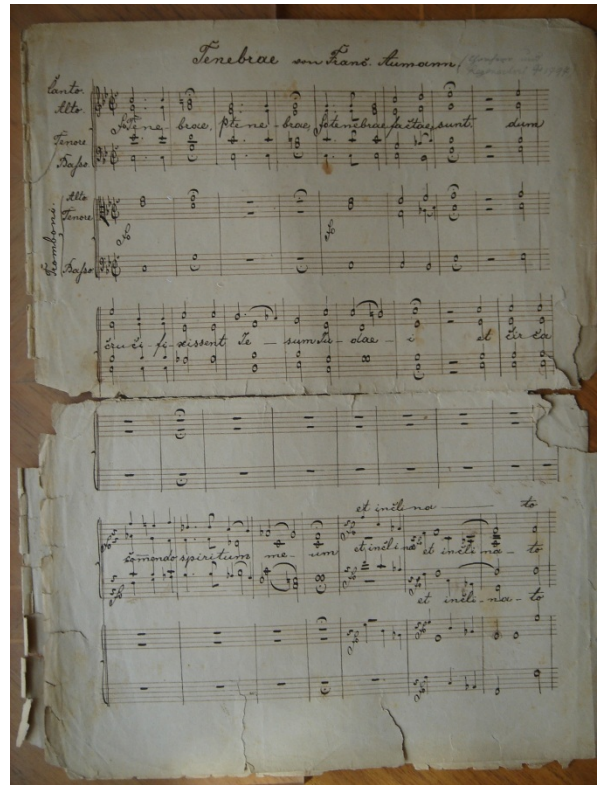 Tenebrae von Franc. Aumann.
Canto.
Alto
Tenore
Basso.
Tenebrae, tenebrae, tenebrae factae sunt. dum
Tromboni.
Alto
Tenore
Basso.
cruci-fi-xissent Je - sum Ju-dae-i et cir ca
et inclina - to
comendo spiritum me - um et inclina et incli na - to
et incli-na-to